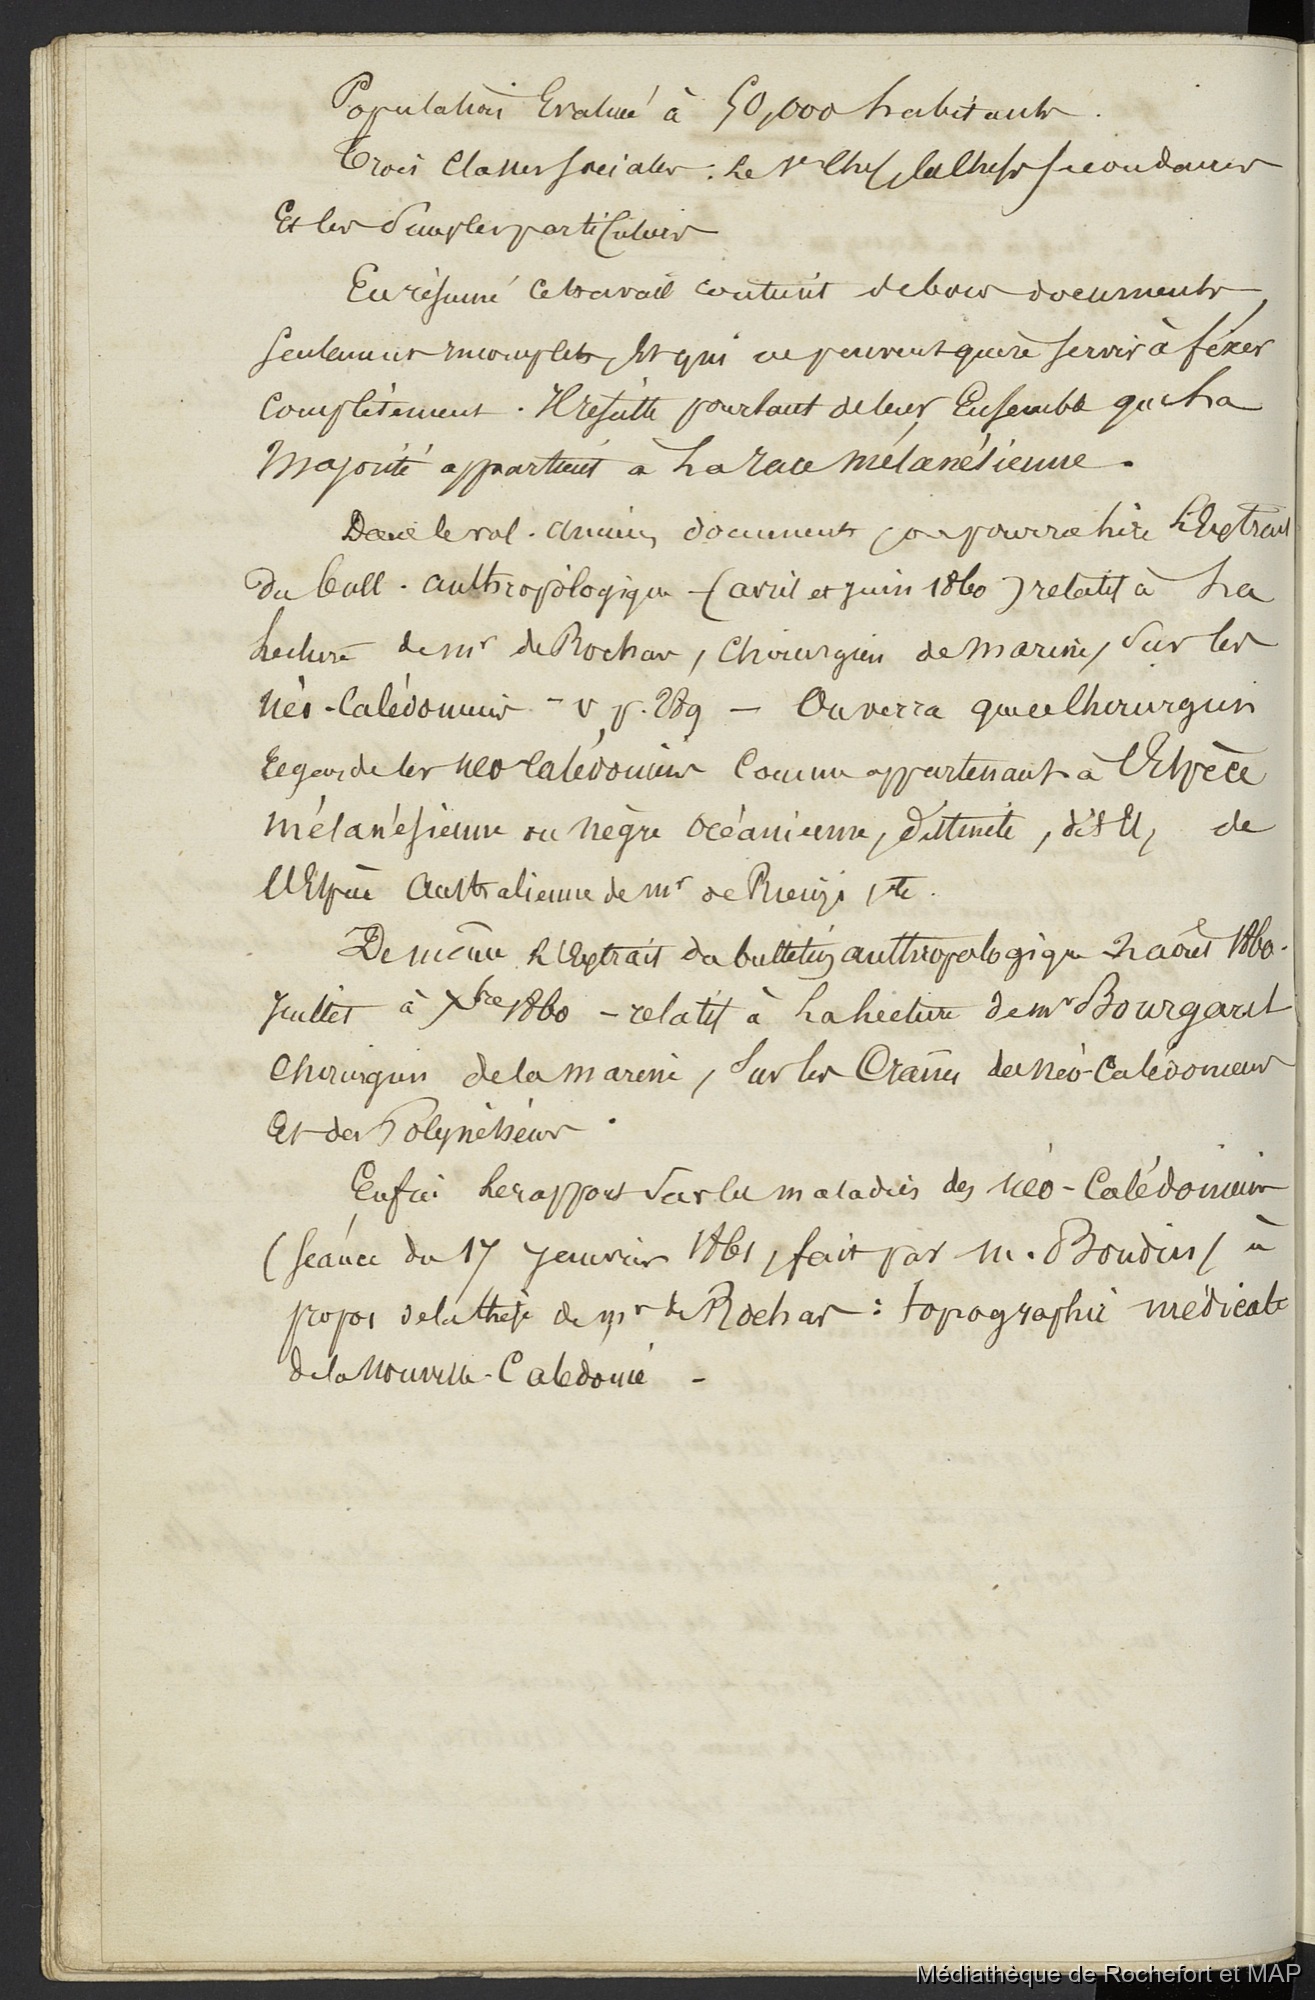 Population Evaluée à 50,000 habitants.
Trois classes sociales : Le 1er Chef, les chefs secondaires
Et les simples particuliers
En résumé ce travail contient de bons documents,
seulement incomplets, Et qui ne peuvent guère servir à fixer
complètement. Il résulte pourtant de leur Ensemble que La
Majorité appartient à La race mélanésienne.
Dans le vol. documents, on pourra lire L'Extrait
Du bull. anthropologique (avril et juin 1860) relatif à La
Lecture de mr de Rochas, chirurgien de marine, sur les
Néo-Calédoniens - v. p. 289 — On verra que ce chirurgien
Regarde les néo calédoniens comme appartenant à l'Espèce
mélanésienne ou nègre océanienne, distincte, dit il, de
l'Espèce Australienne de mr de Rienzi, etc.
De même L'Extrait du bulletin anthropologique 2 août 1860.
Juillet à Xbre 1860 - relatif à La Lecture de mr Bourgarel
chirurgien de la marine, sur les Crânes des néo-Calédoniens
Et des Polynésiens.
Enfin Le rapport sur les maladies des néo-Calédoniens
(séance du 17 janvier 1861, fait par m. Boudin, à
propos de la thèse de mr de Rochas : topographie médicale
de la nouvelle-Calédonie -
Médiathèque de Rochefort et MAP